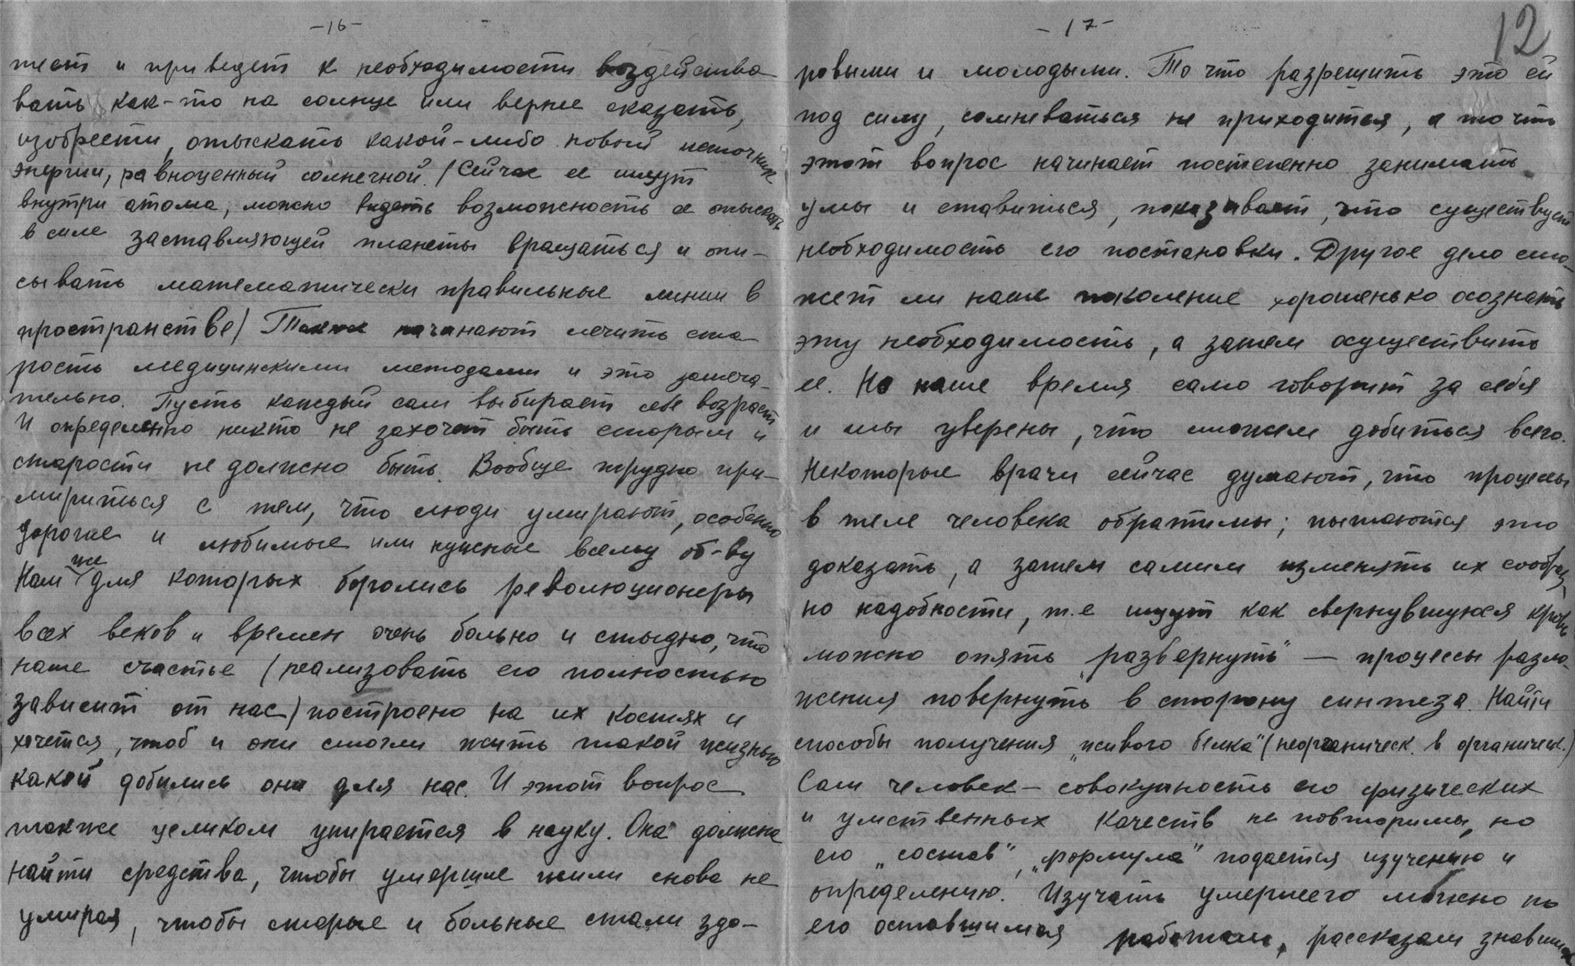 -16-
жет и приведет к необходимости воздейство-
вать как-то на солнце или верне сказать,
изобрести, отыскать какой-либо новый источник
энергии, равноценный солнечной. (Сейчас ее ищут
внутри атома, можно видеть возможность ее отыскать
в силе заставляющей планеты вращаться и опи-
сывать математически правильные линии в
пространстве) начинают лечить ста-
рость медицинскими методами и это замеча-
тельно. Пусть каждый сам выбирает себе возраст
И определенно никто не захочет быть старым и
старости не должно быть. Вообще трудно при-
мириться с тем, что люди умирают, особенно
дорогие и любимые или нужные всему об-ву
Нам же для которых боролись революционеры
всех веков и времен очень больно и стыдно, что
наше счастье (реализовать его полностью
зависит от нас) построено на их костях и
хочется, чтоб и они смогли жить такой жизнью
какой добились они для нас. И этот вопрос
также целиком упирается в науку. Она должна
найти средства, чтобы умершие жили снова не
умирая, чтобы старые и больные стали здо-
-17-
12
ровыми и молодыми. То что разрешить это ей
под силу, сомневаться не приходится, а то что
этот вопрос начинает постепенно занимать
умы и ставиться, показывает, что существует
необходимость его постановки. Другое дело смо-
жет ли наше поколение хорошенько осознать
эту необходимость, а затем осуществить
ее. Но наше время само говорит за себя
и мы уверены, что сможем добиться всего.
Некоторые врачи сейчас думают, что процессы
в теле человека обратимы; пытаются это
доказать, а затем самим изменять их сообраз-
но надобности, т.е ищут как свернувшуюся кровь
можно опять "развернуть" — процессы разло-
жения повернуть в сторону синтеза. Найти
способы получения "живого белка" (неорганическ. в органическ.)
Сам человек - совокупность его физических
и умственных качеств не повторимы, но
его "состав", "формула" подается изучению и
определению. Изучать умершего можно по
его оставшимся работам, рассказам знавших